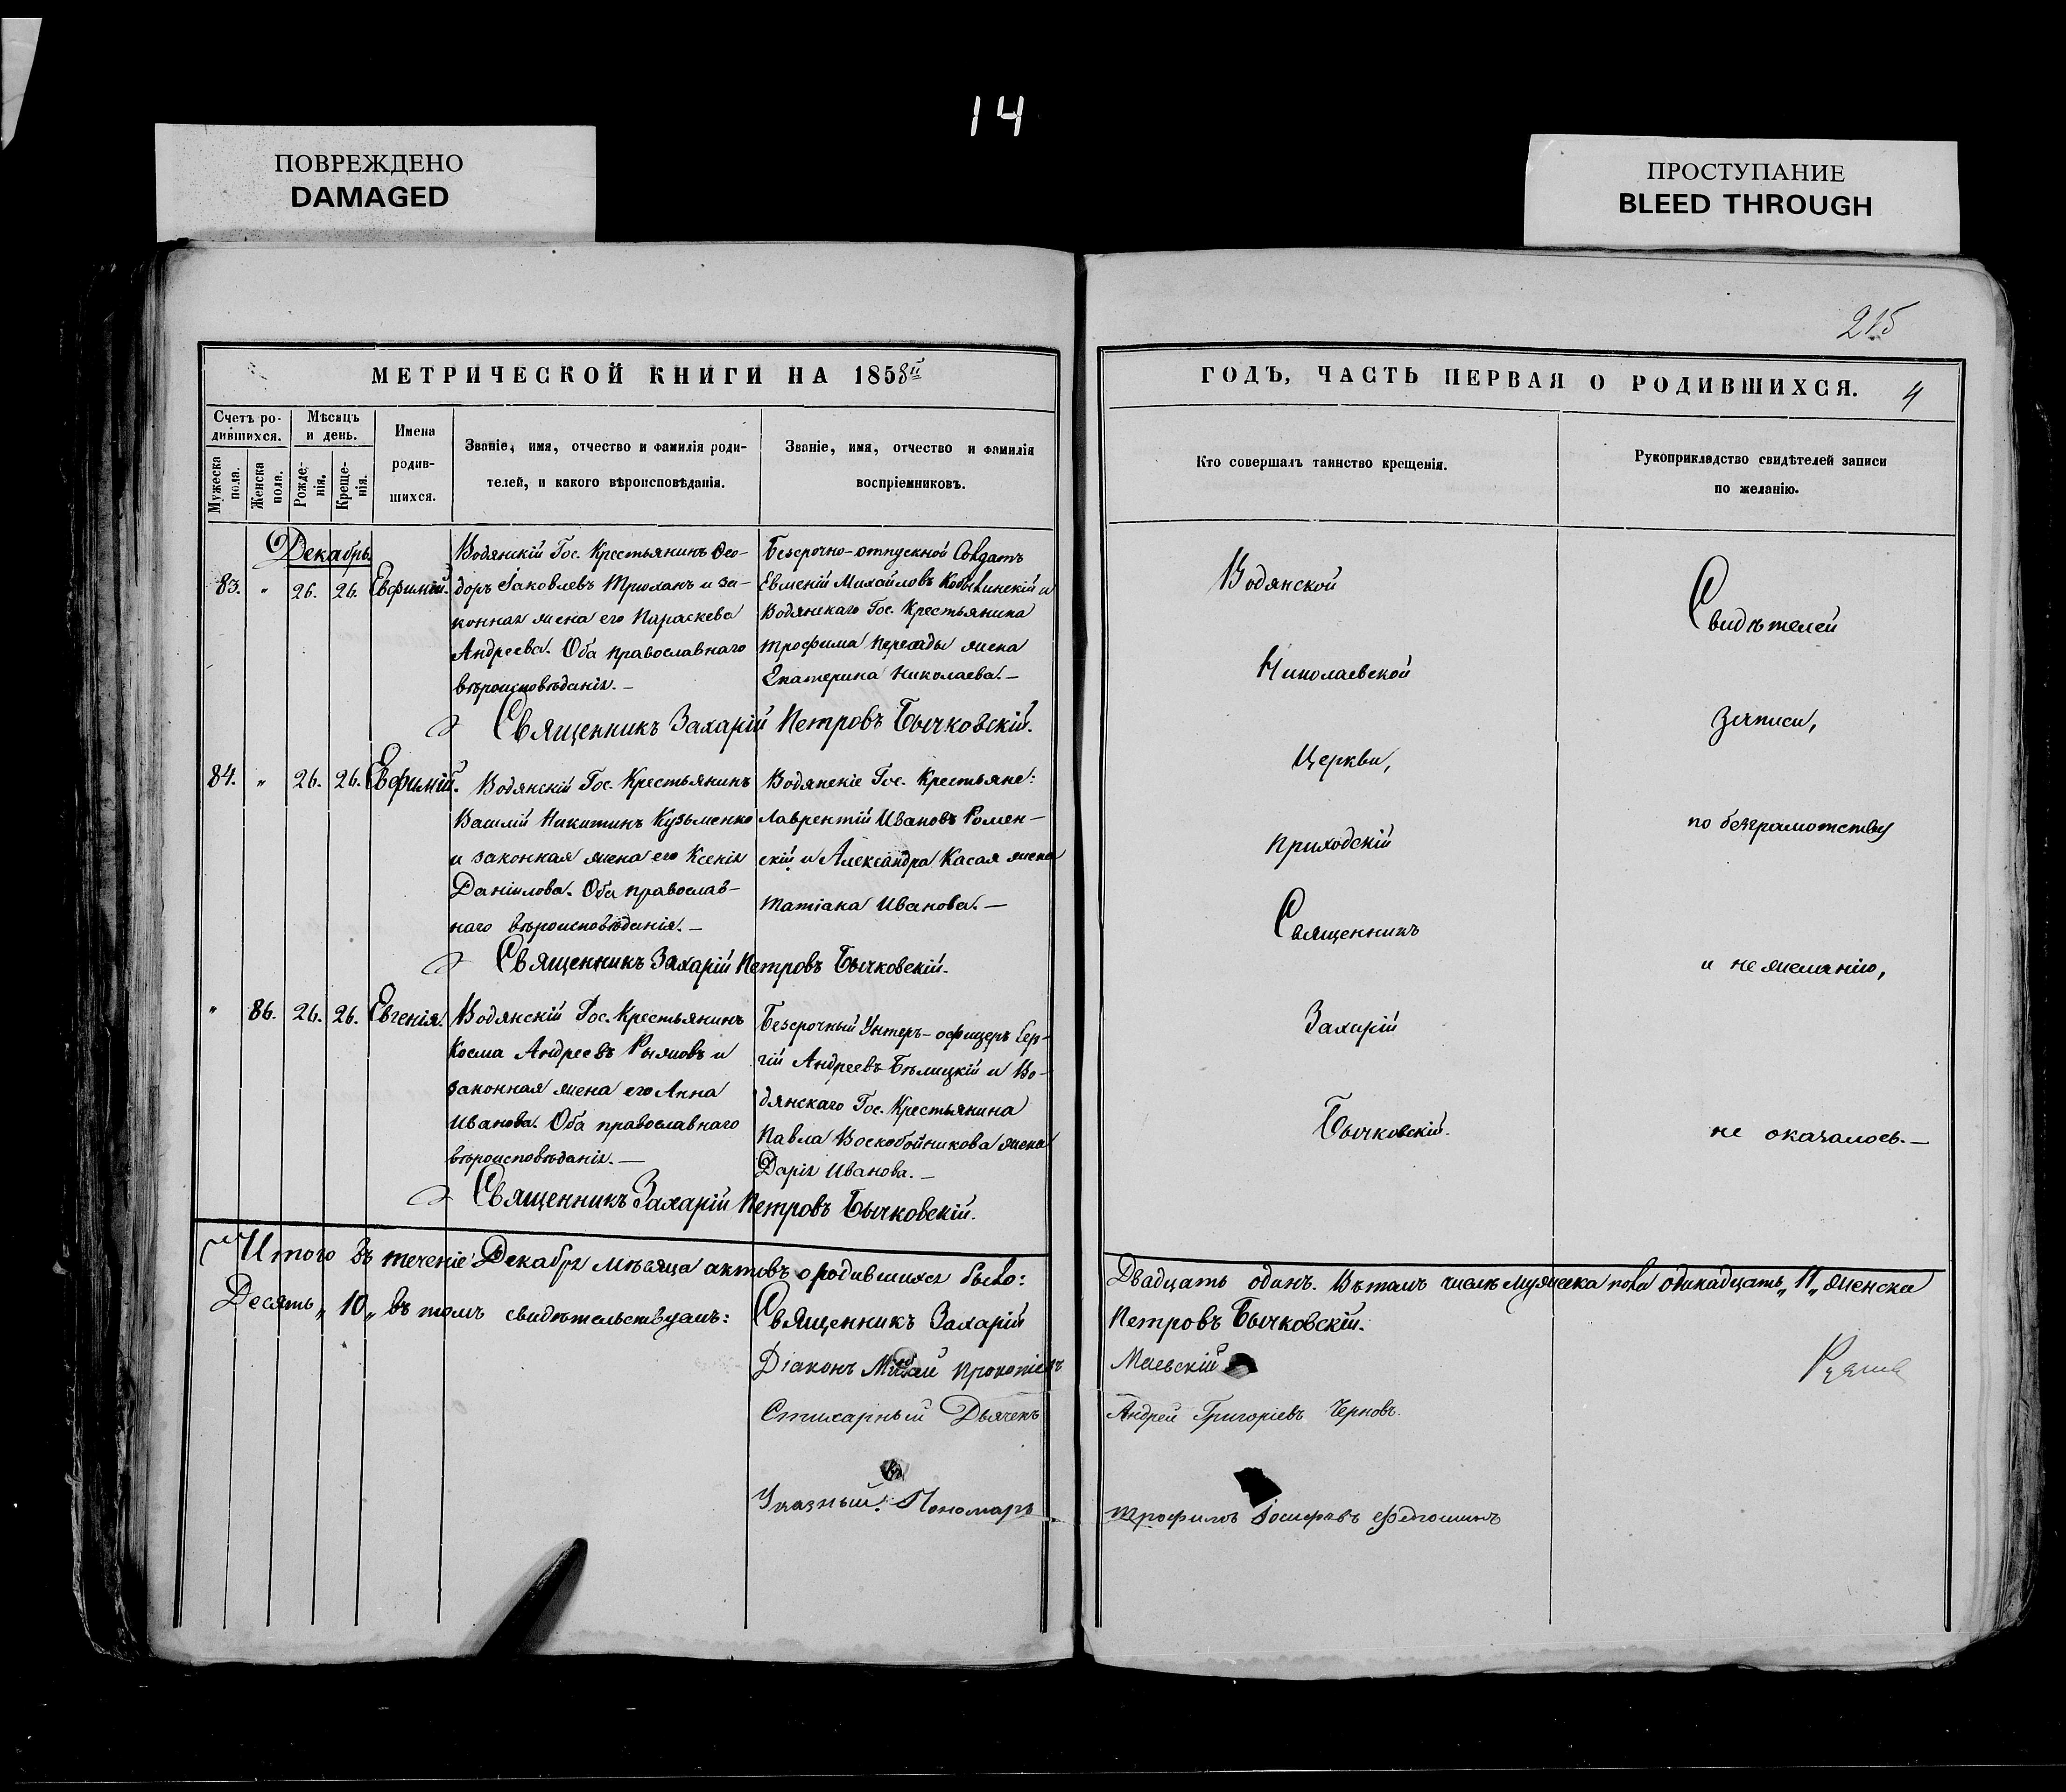 14
ПОВРЕЖДЕНО
DAMAGED
ПРОСТУПАНИЕ
BLEED THROUGH
215
МЕТРИЧЕСКОЙ КНИГИ НА 1858й
ГОДЪ, ЧАСТЬ ПЕРВАЯ О РОДИВШИХСЯ.
4
Счетъ ро-
дившихся.
Мѣсяцъ
и день.
Мужеска
пола.
Женска
пола.
Рожде-
нія.
Креще-
нія.
Имена
родив-
шихся.
Званіе, имя, отчество и фамилія роди-
телей, и какого вѣроисповѣданія.
Званіе, имя, отчество и фамилія
воспріемниковъ.
Кто совершалъ таинство крещенія.
Рукоприкладство свидѣтелей записи
по желанію.
Декабрь
83. „ 26. 26. Евфимій.
Водянскій Гос. Крестьянинъ Ѳео-
доръ Іаковлевъ Трюханъ и за-
конная жена его Параскева
Андреева. Оба православнаго
вѣроисповѣданія. —
Безсрочно-отпускной Солдатъ
Евменій Михайловъ Кобылинскій и
Водянскаго Гос. Крестьянина
Трофима Пересады жена
Екатерина Николаева. —
Священникъ Захарій Петровъ Бычковскій.
84. „ 26. 26. Евфимій.
Водянскій Гос. Крестьянинъ
Василій Никитинъ Кузьменко
и законная жена его Ксенія
Даніилова. Оба православ-
наго вѣроисповѣданія. —
Водянскіе Гос. Крестьяне:
Лаврентій Ивановъ Ромен-
скій и Александра Касая жена
Татіана Иванова. —
Священникъ Захарій Петровъ Бычковскій.
„ 86. 26. 26. Евгенія.
Водянскій Гос. Крестьянинъ
Косма Андреевъ Рыжовъ и
законная жена его Анна
Иванова. Оба православнаго
вѣроисповѣданія. —
Безсрочный Унтеръ-офицеръ Сер-
гій Андреевъ Бѣлицкій и Во-
дянскаго Гос. Крестьянина
Павла Воскобойникова жена
Дарія Иванова. —
Священникъ Захарій Петровъ Бычковскій.
Водянской
Николаевской
Церкви,
приходскій
Священникъ
Захарій
Бычковскій.
Свидѣтелей
записи,
по безграмотству
и не желанію,
не оказалось. —
Итого въ теченіе Декабря мѣсяца актовъ о родившихся было:
Двадцать одинъ. Въ томъ числѣ мужеска пола одинадцать „11„ женска
Десять „10„ въ томъ свидѣтельствуемъ: Священникъ Захарій
Петровъ Бычковскій.
Діаконъ Прокопіевъ
Маевскій
Стихарный Дьячекъ
Андрей Григоріевъ Черновъ.
Указный Пономарь
Трофимъ Іосифовъ